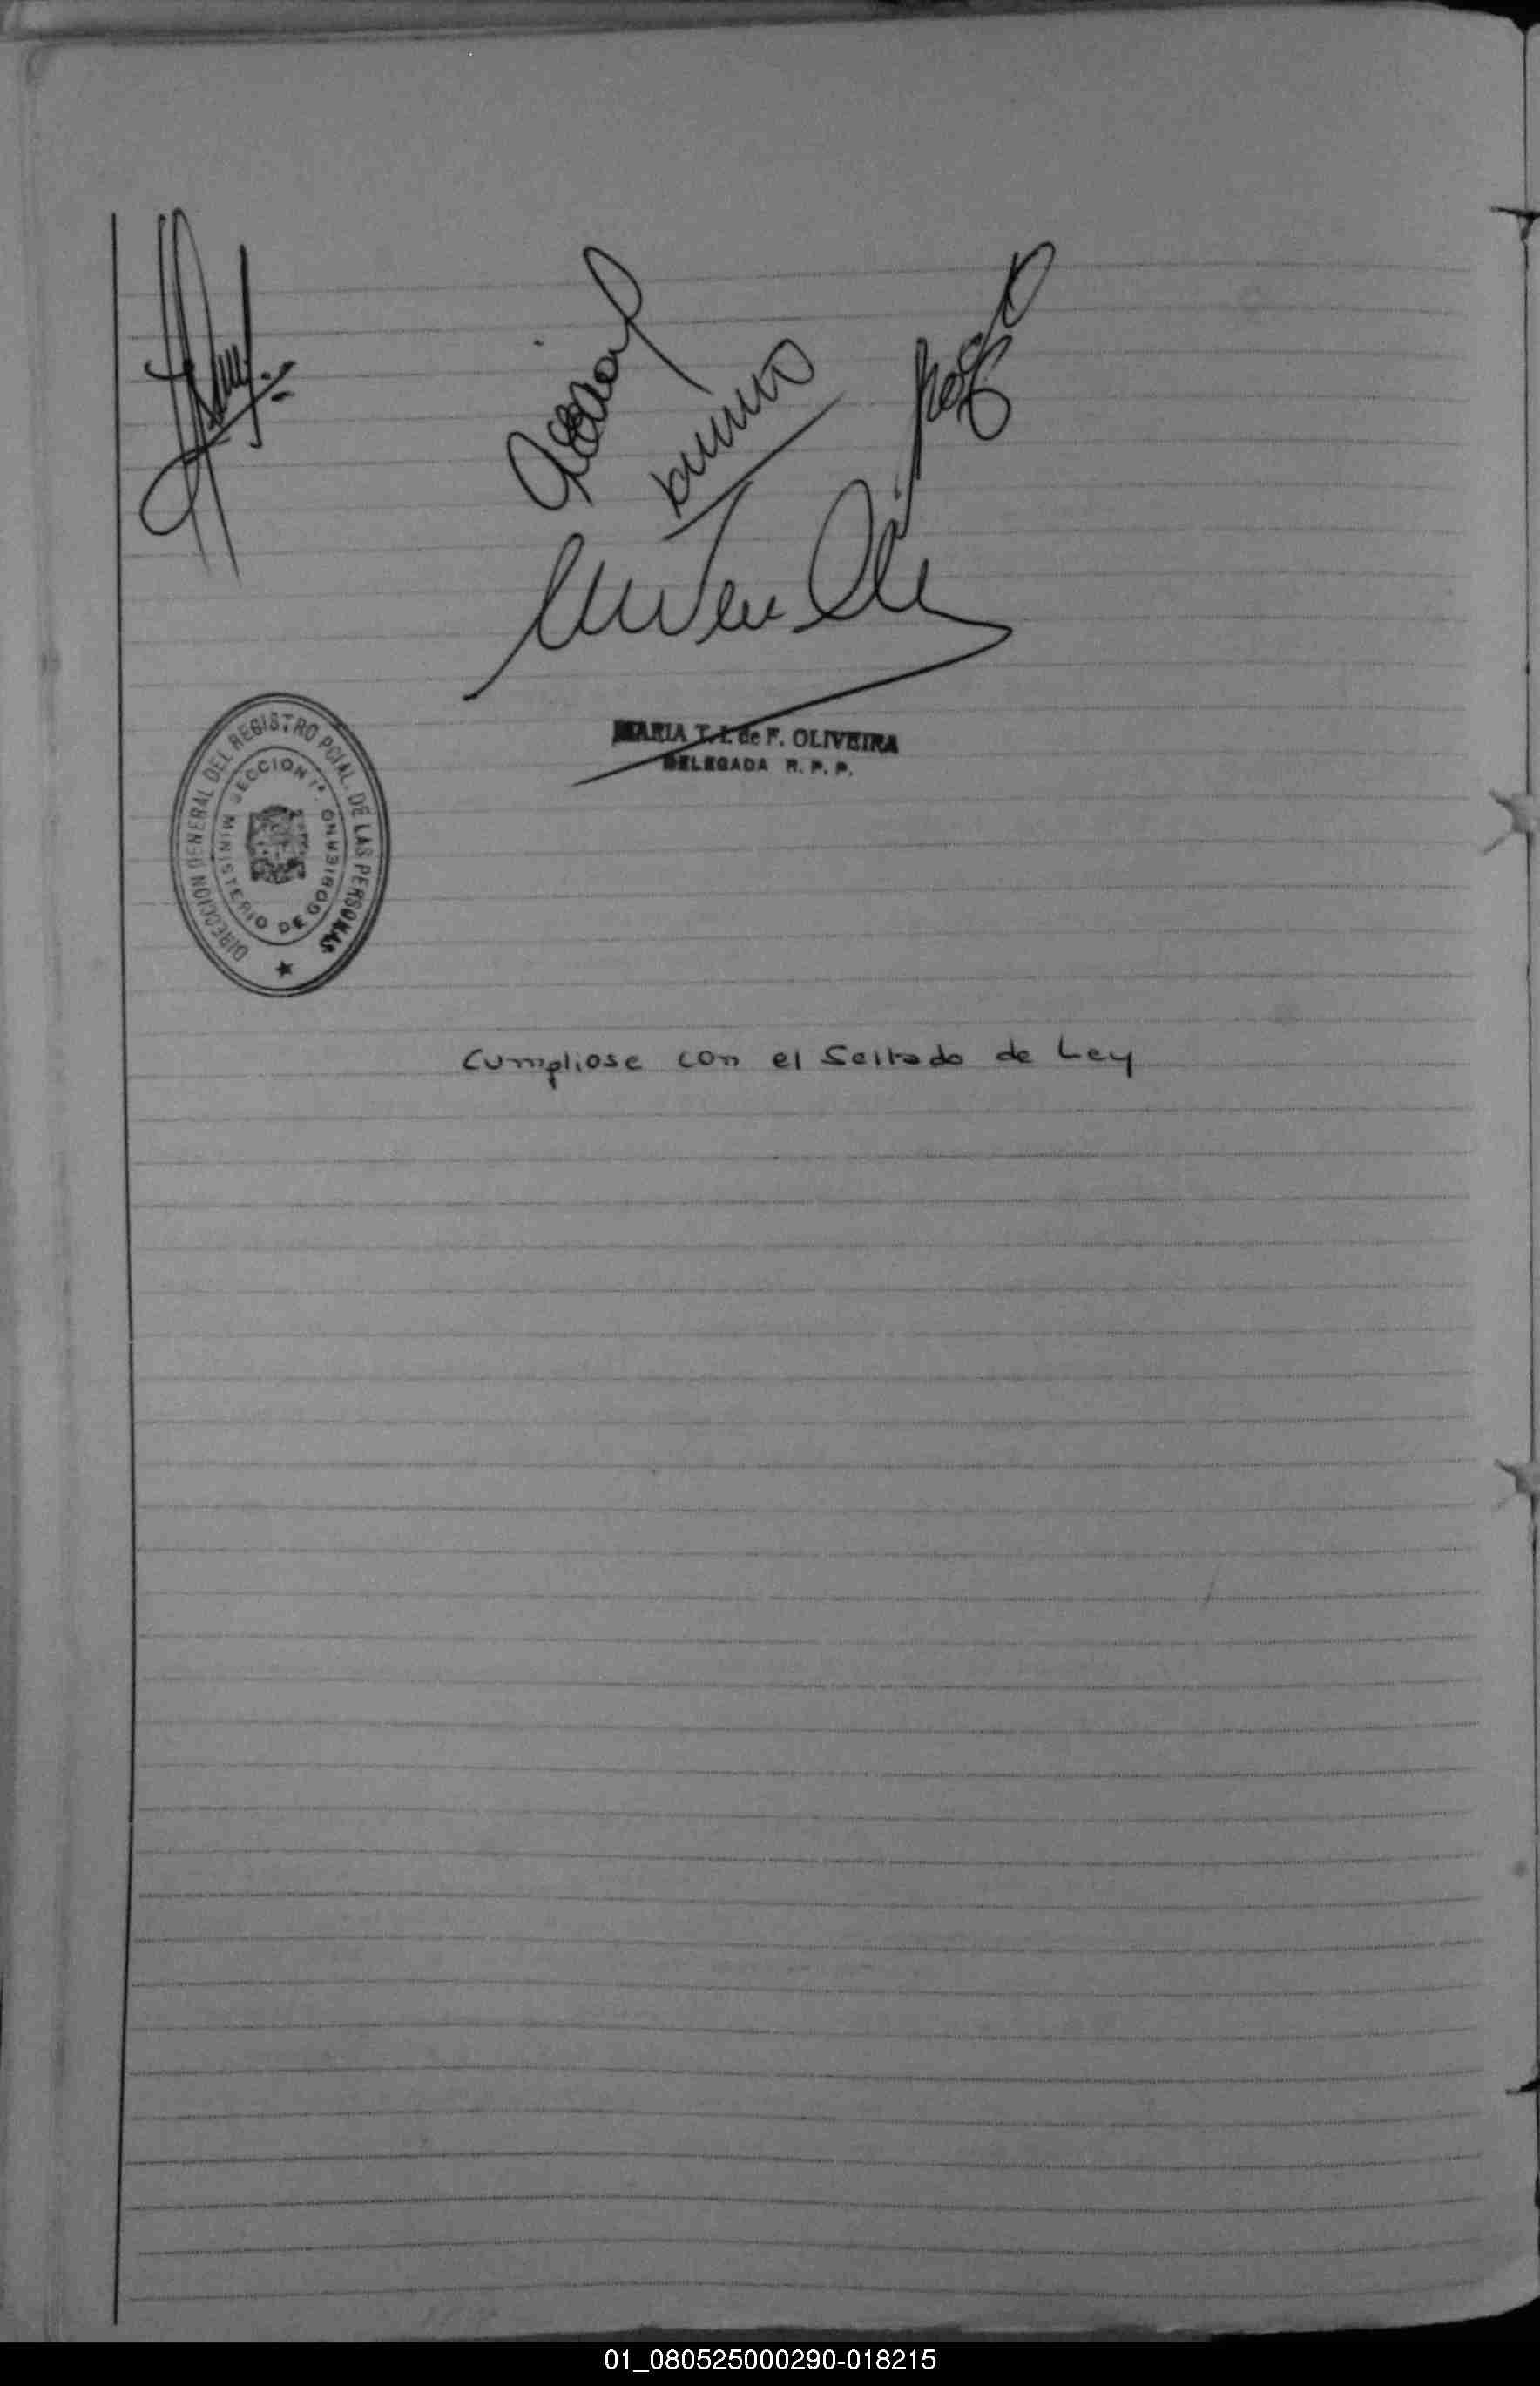 MARIA T. I. de F. OLIVEIRA
DELEGADA R. P. P.
DIRECCION GENERAL DEL REGISTRO PCIAL. DE LAS PERSONAS
SECCION 1ª.
MINISTERIO DE GOBIERNO
Cumpliose con el Sellado de Ley
01_080525000290-018215